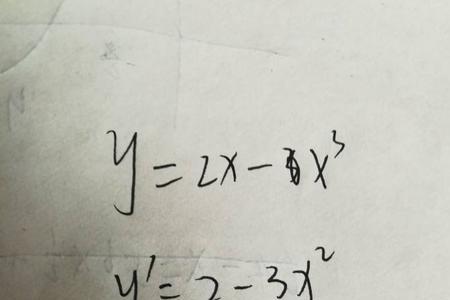 y = 2x - x³
y' = 2 - 3x²